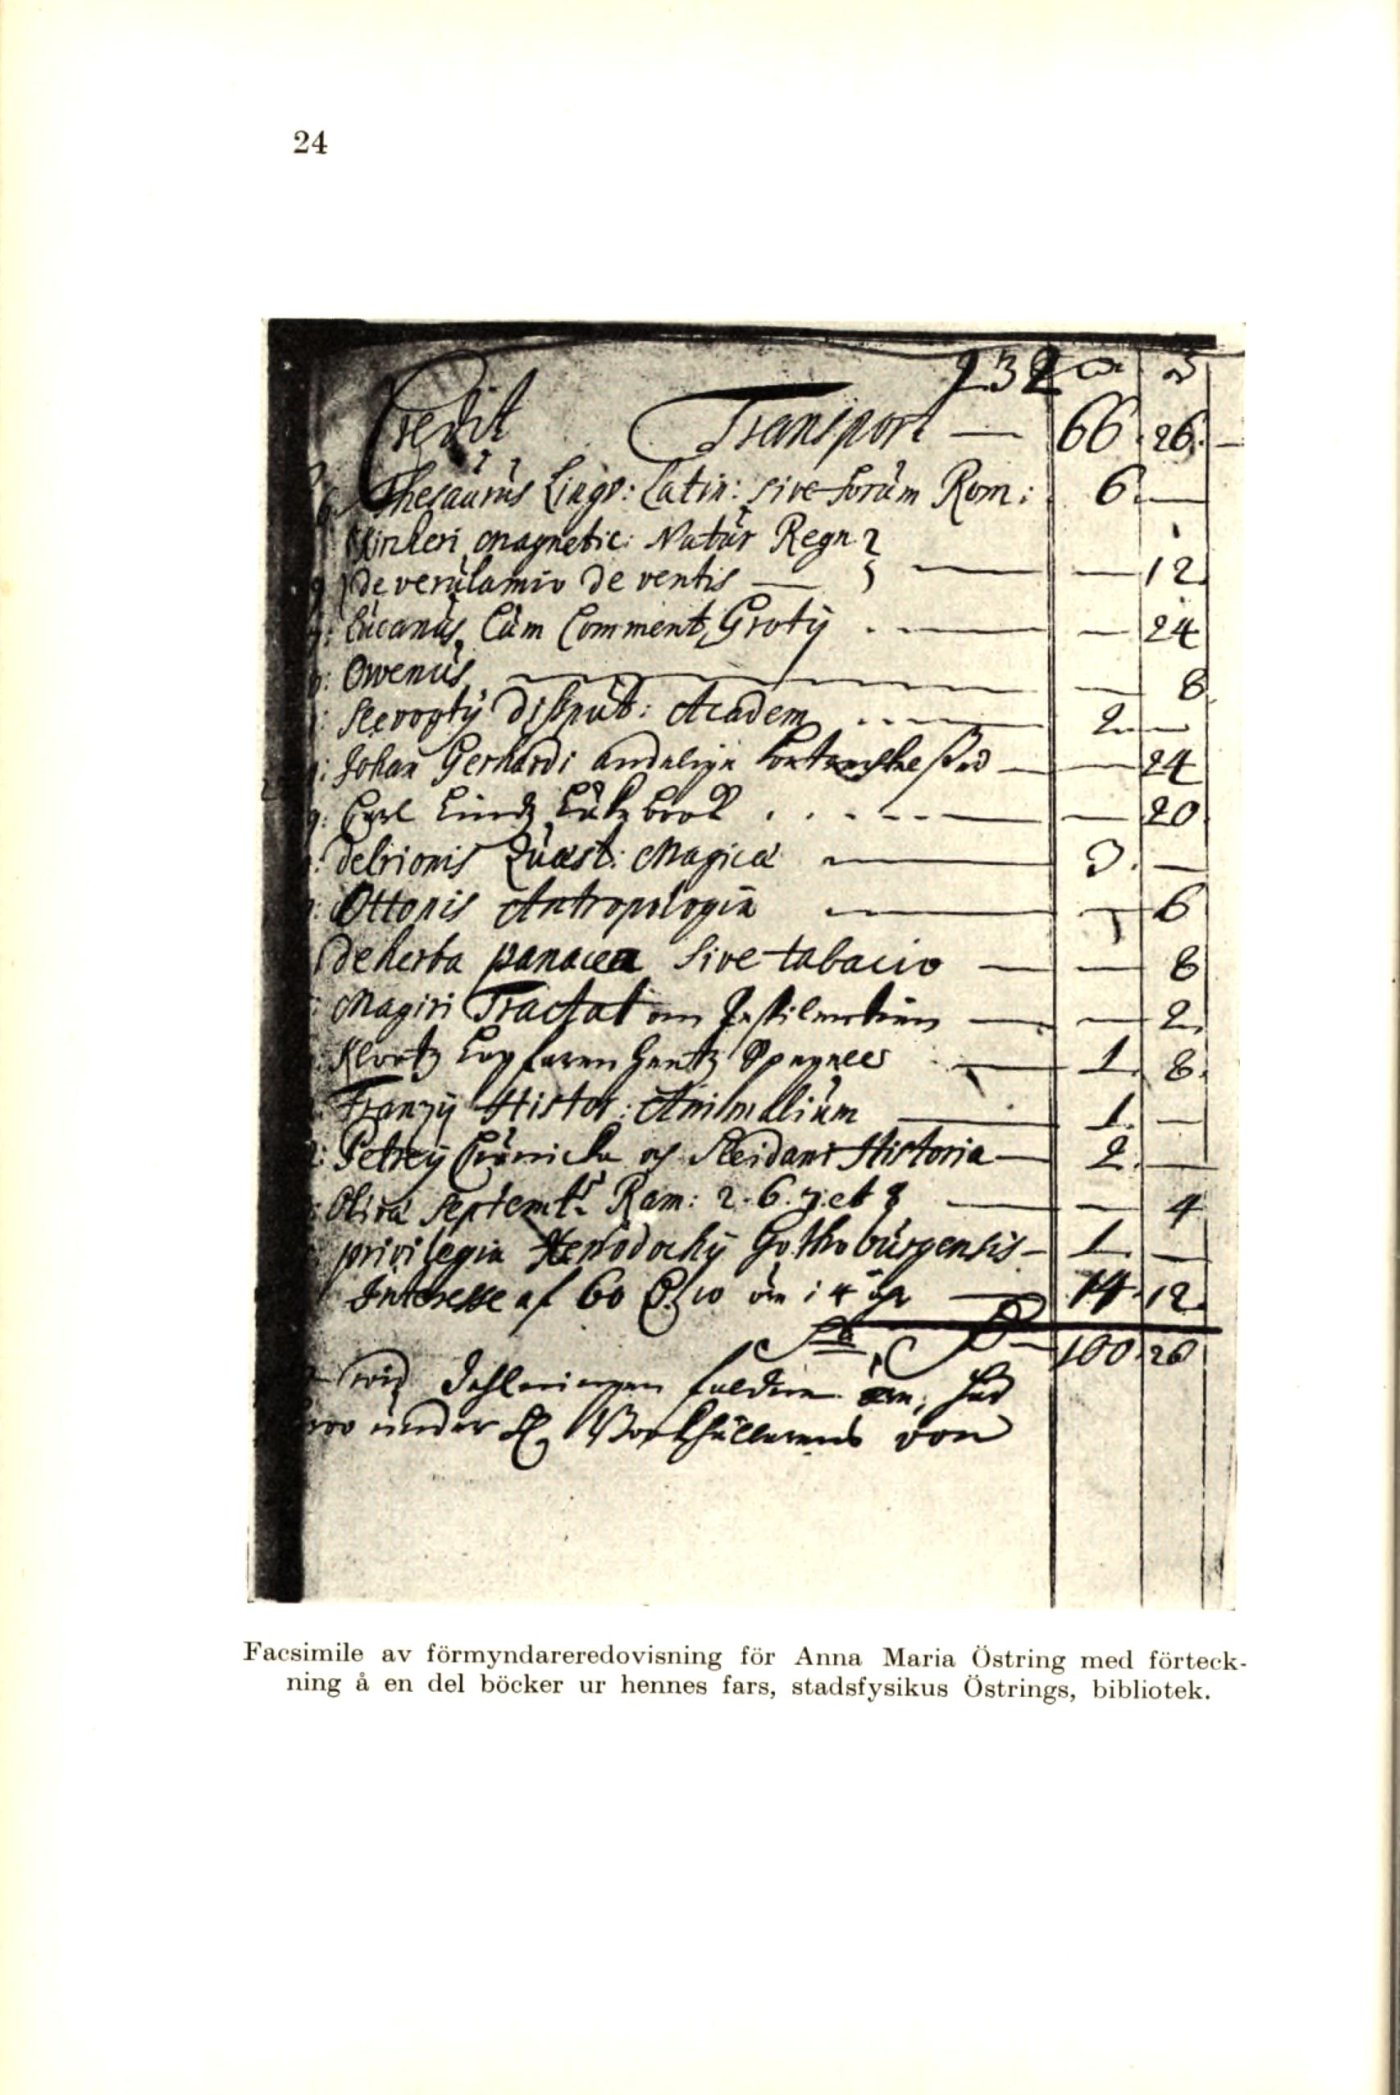 24
232
Credit Transport — 66. 26.
Thesaurus Lingv: Latin: sive forum Rom: 6.
Kircheri magnetic: Natur Regn
de verulamio de ventis — 12
Lucanus Cum Comment Grotÿ — 24
Owenus — 8
Slevogtÿ Disput: Academ — 2.
Johan Gerhardi andelige — 24
Carl — 20
delrionis Quæst: Magicæ — 3.
Ottonis Antropologia — 6
de herba panacea sive tabacco — 8
Magiri Tractat om — 2.
1. 8.
Franzÿ Histor: Animalium — 1.
Petreÿ Crönicka og Sleidani Historia — 2.
Oliva Septemt: Ram: 2. 6. 7. et 8 — 4
privilegia Xenodochÿ Gothoburgensis — 1.
Interesse af 60 10 öre i 4 åhr — 14. 12.
Sa 100. 26
wid
under von
Facsimile av förmyndareredovisning för Anna Maria Östring med förteck-
ning å en del böcker ur hennes fars, stadsfysikus Östrings, bibliotek.